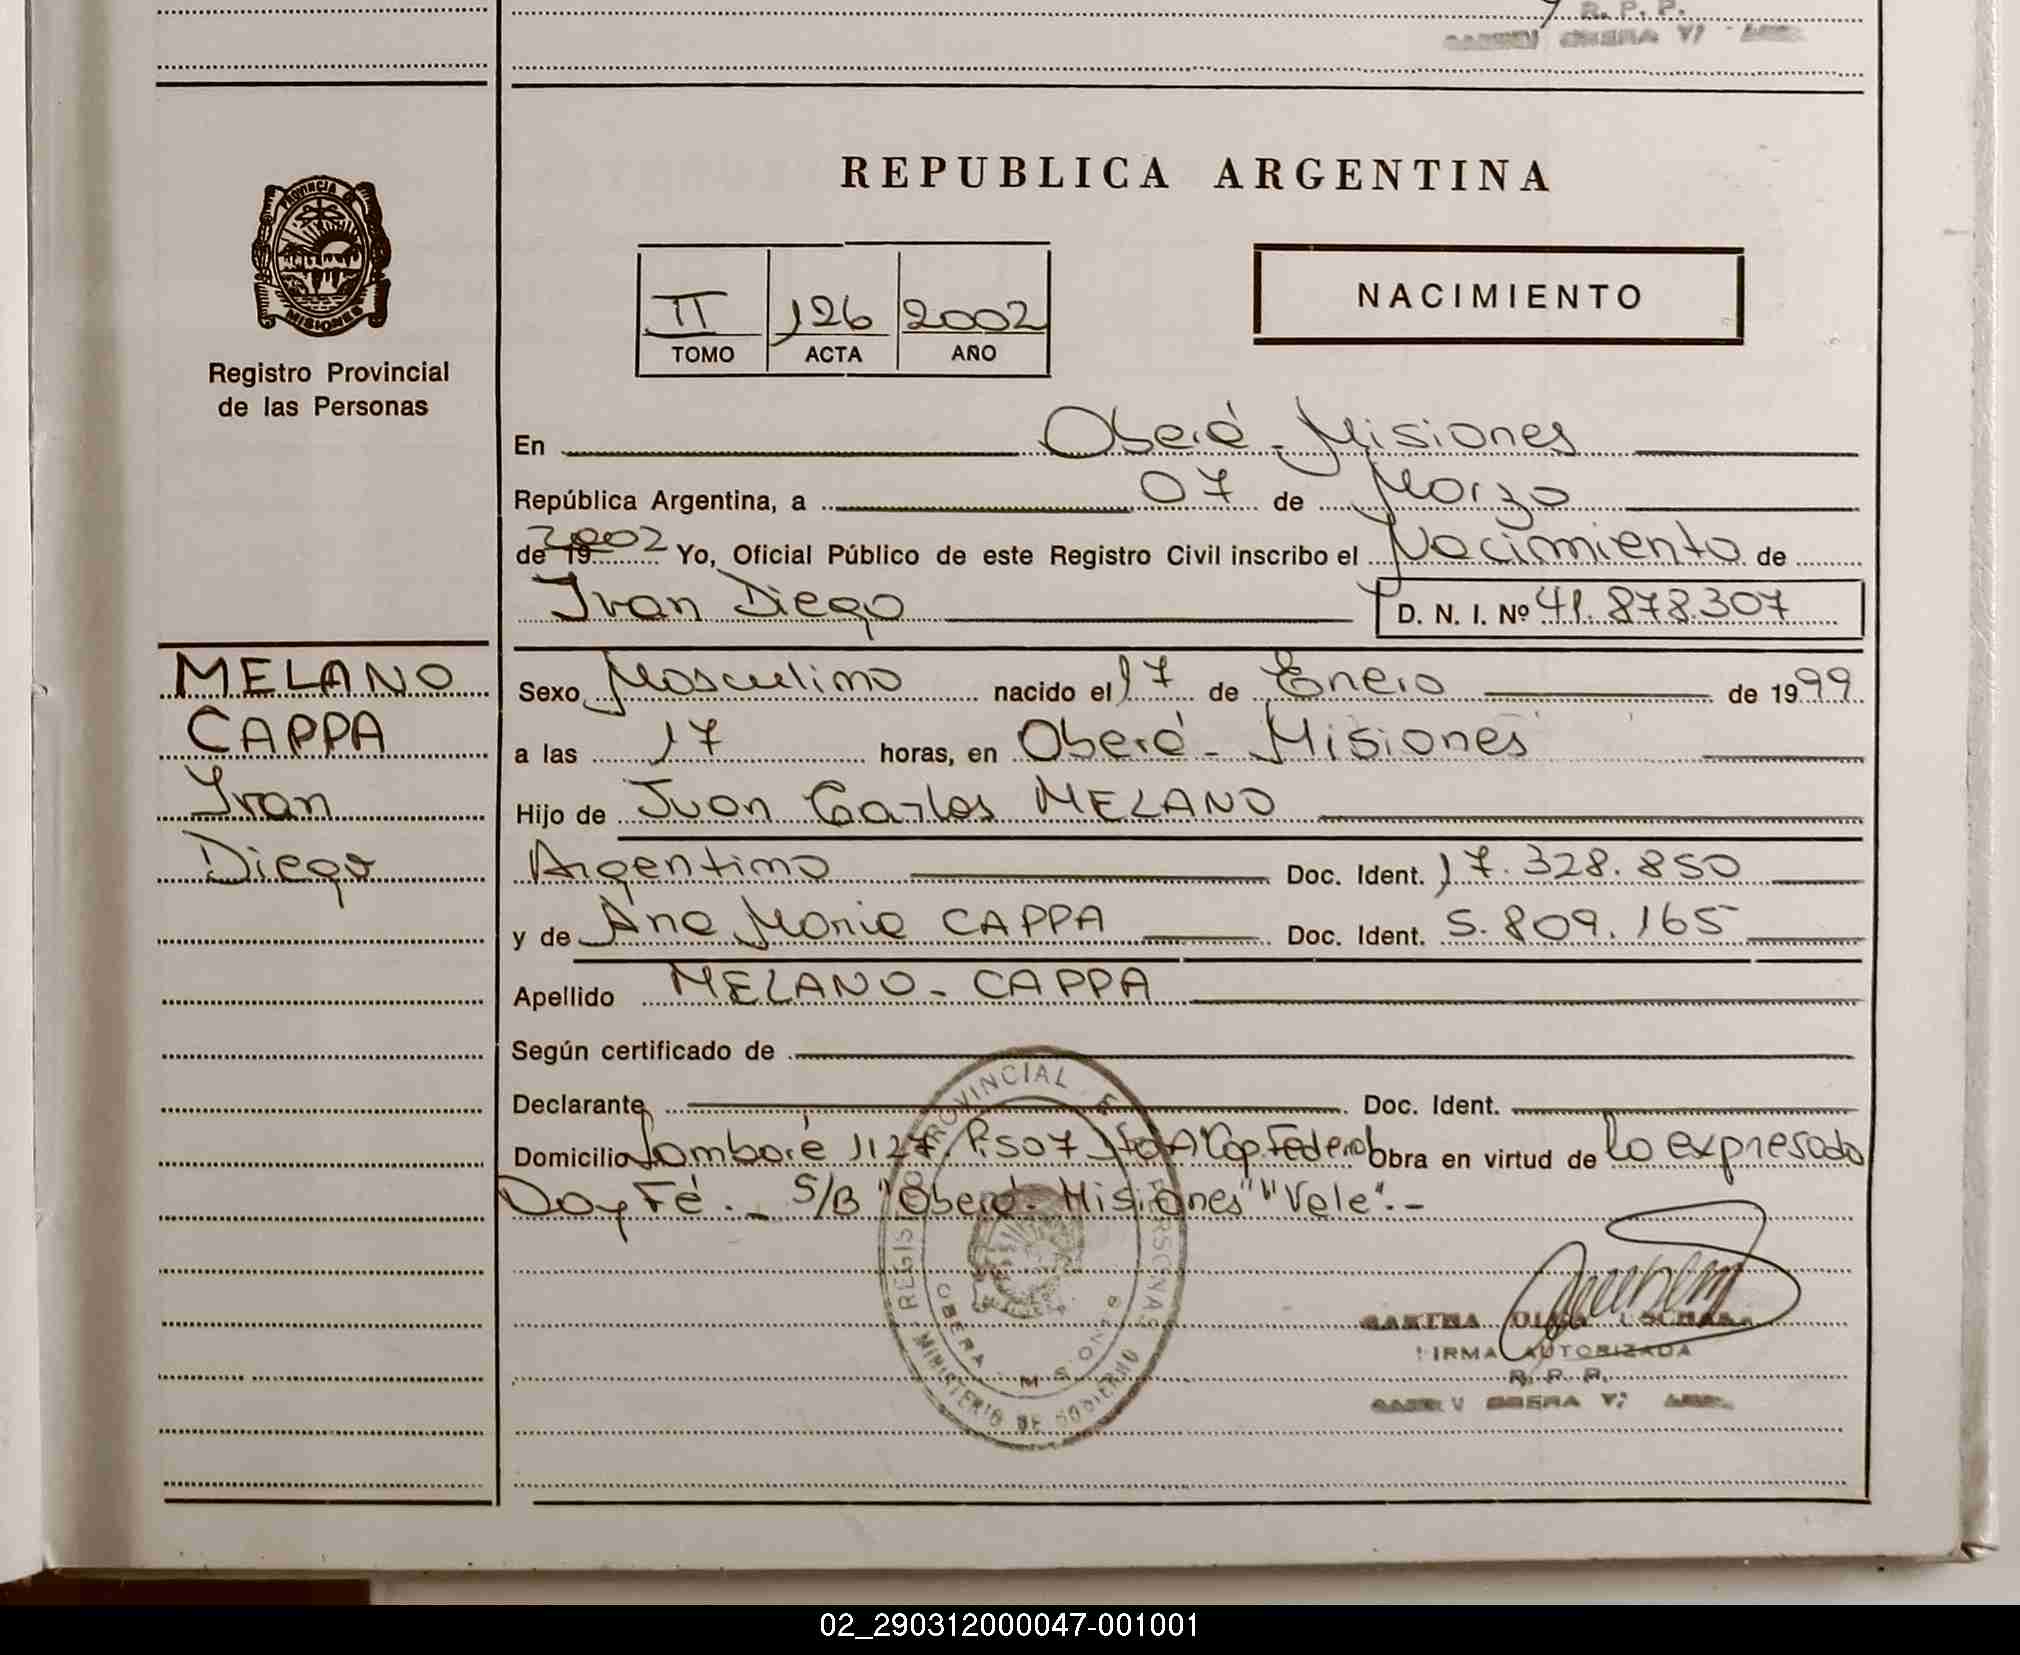 R. P. P.
REPUBLICA ARGENTINA
PROVINCIA
MISIONES
Registro Provincial
de las Personas
II 126 2002
TOMO ACTA AÑO
NACIMIENTO
En Oberá - Misiones
República Argentina, a 07 de Marzo
de 19 2002 Yo, Oficial Público de este Registro Civil inscribo el Nacimiento de
Ivan Diego D. N. I. Nº 41.878.307
MELANO
CAPPA
Ivan
Diego
Sexo Masculino nacido el 17 de Enero de 1999
a las 17 horas, en Oberá - Misiones
Hijo de Juan Carlos MELANO
Argentino Doc. Ident. 17.328.850
y de Ana Maria CAPPA Doc. Ident. 5.809.165
Apellido MELANO - CAPPA
Según certificado de
Declarante Doc. Ident.
Domicilio 1127 Piso 7 Cap. Federal Obra en virtud de lo expresado
Doy Fé. - S/B "Oberá - Misiones" "Vale". -
REGISTRO PROVINCIAL DE LAS PERSONAS
OBERA MISIONES
MINISTERIO DE GOBIERNO
FIRMA AUTORIZADA
R. P. P.
02_290312000047-001001